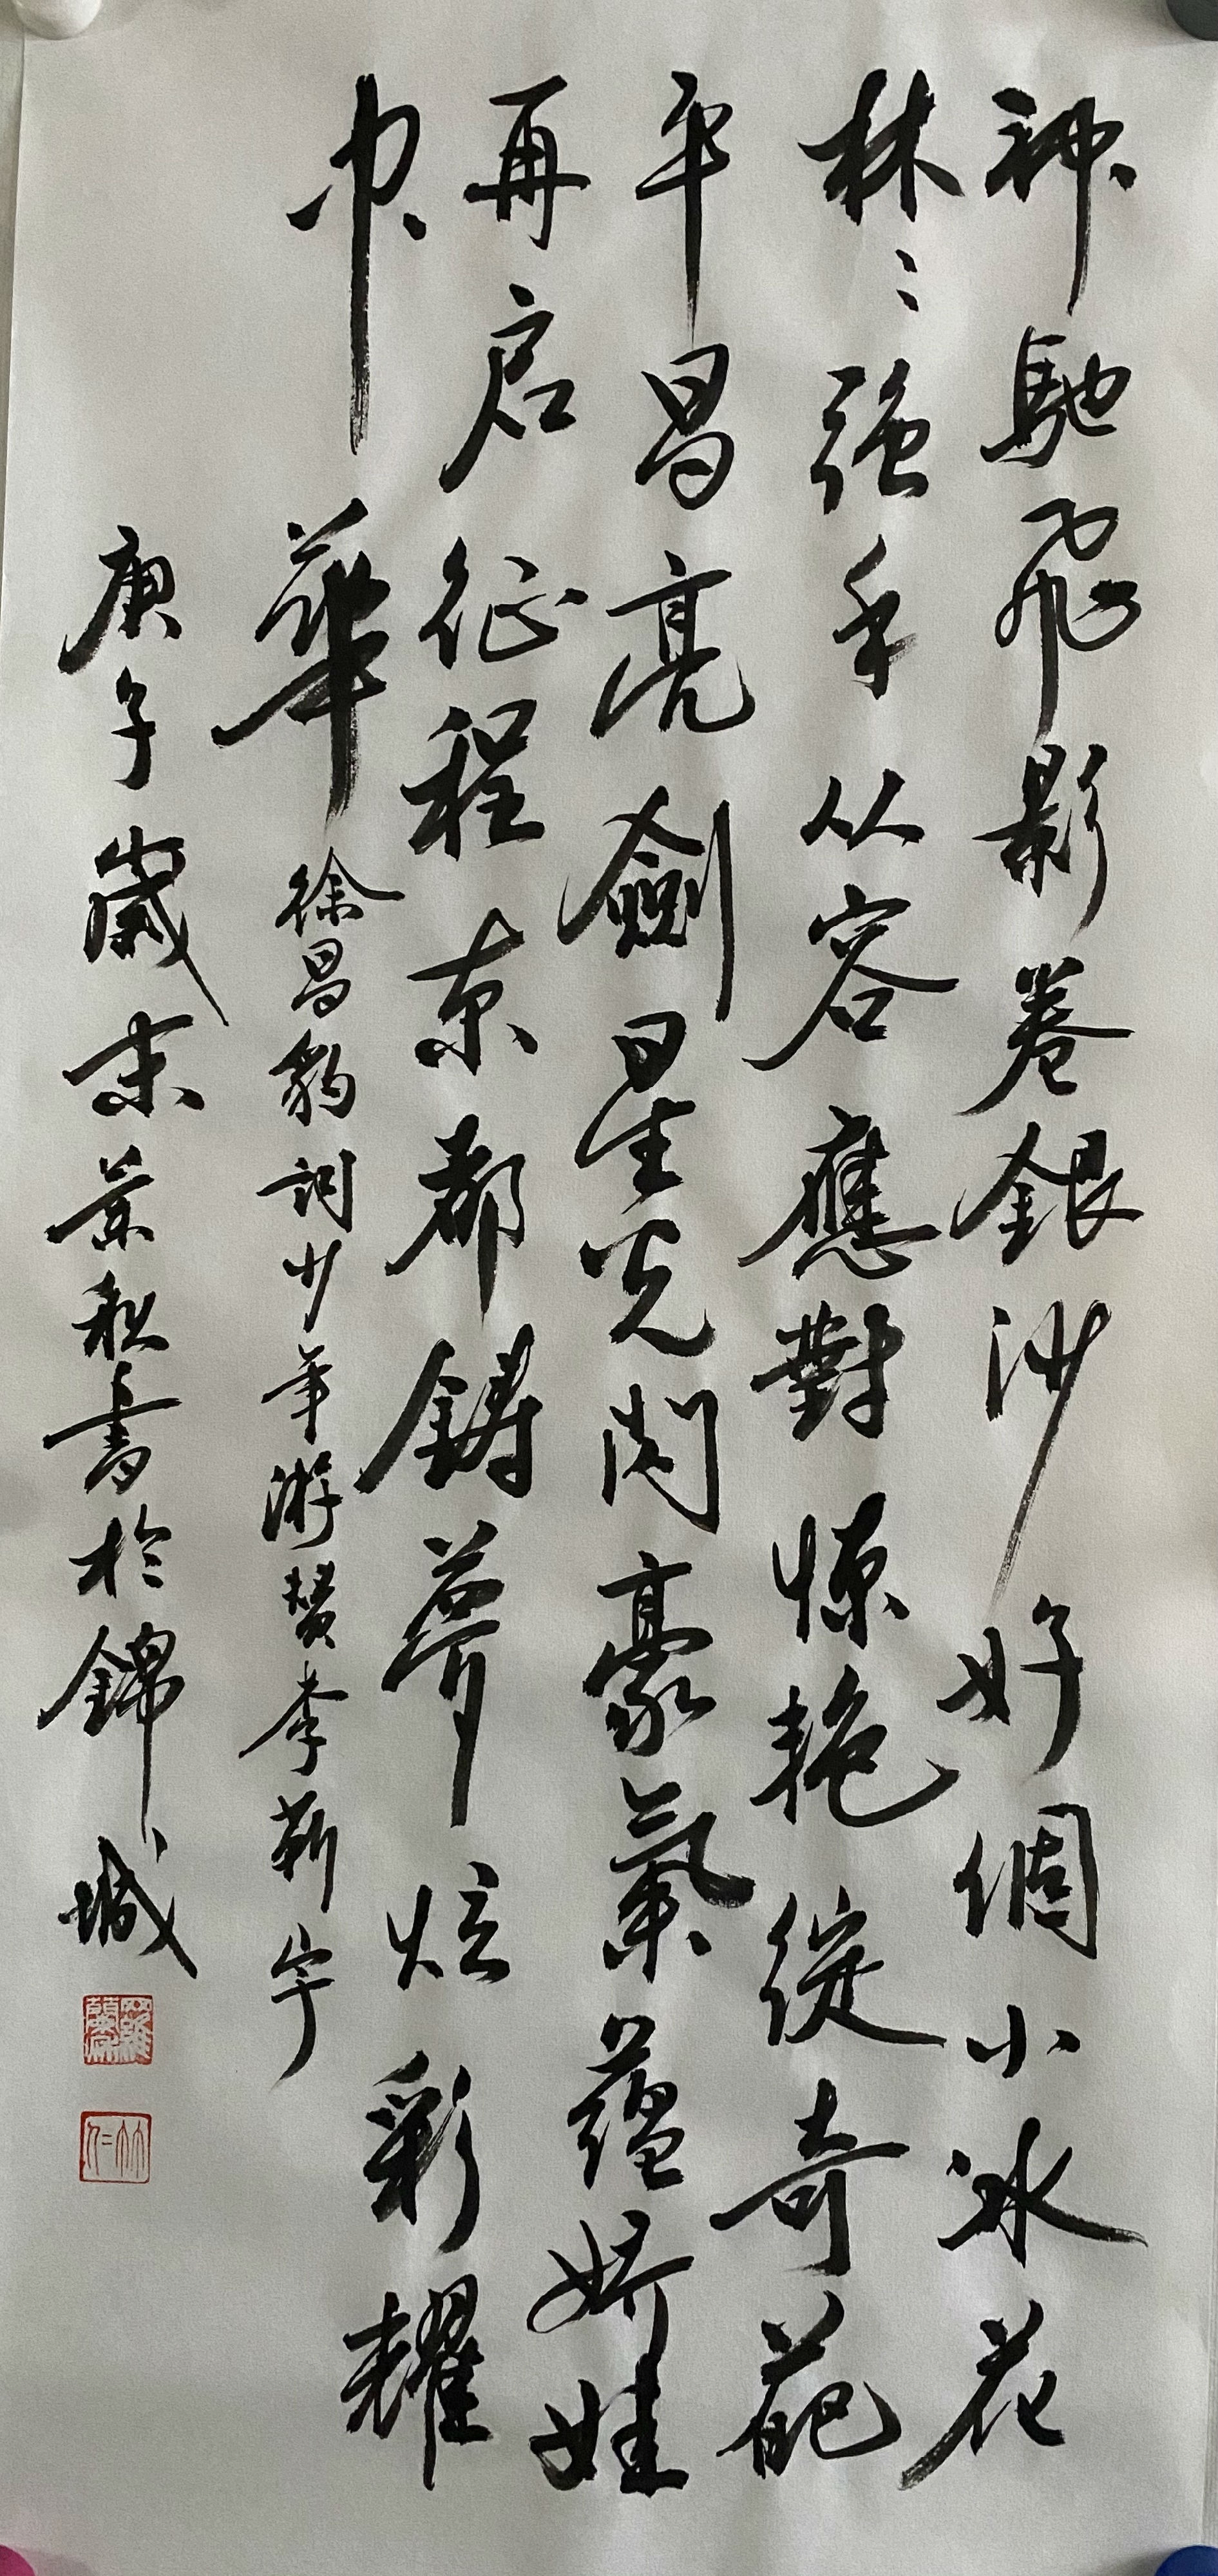 神馳飛影卷銀沙好個小冰花
林〻強手从容應對惊艳綻奇葩
平昌亮劍星光闪豪氣蘊娇娃
再启征程京都鑄夢炫彩耀
中華
徐昌豹词少年游赞李靳宇
庚子歲末景秋書於錦城